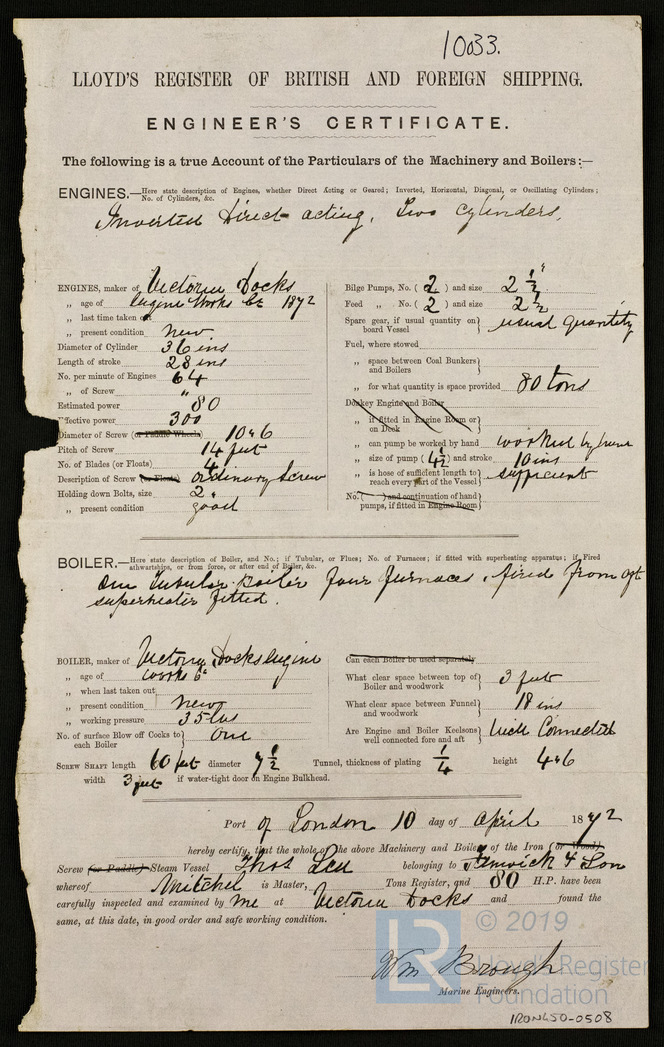 10033.
LLOYD'S REGISTER OF BRITISH AND FOREIGN SHIPPING.
ENGINEER'S CERTIFICATE.
The following is a true Account of the Particulars of the Machinery and Boilers:—
ENGINES.—Here state description of Engines, whether Direct Acting or Geared; Inverted, Horizontal, Diagonal, or Oscillating Cylinders;
No. of Cylinders, &c.
Inverted Direct acting, Two Cylinders,
ENGINES, maker of Victoria Docks
„ age of Engine Works Co 1872
„ last time taken out
„ present condition new
Diameter of Cylinder 36 ins
Length of stroke 28 ins
No. per minute of Engines 64
„ of Screw "
Estimated power 80
Effective power 300
Diameter of Screw (or Paddle Wheels) 10"6
Pitch of Screw 14 feet
No. of Blades (or Floats) 4
Description of Screw (or Floats) ordinary Screw
Holding down Bolts, size 2"
„ present condition good
Bilge Pumps, No. ( 2 ) and size 2 1/2"
Feed „ No. ( 2 ) and size 2 1/2
Spare gear, if usual quantity on
board Vessel usual quantity
Fuel, where stowed
„ space between Coal Bunkers
and Boilers
„ for what quantity is space provided 80 tons
Donkey Engine and Boiler
„ if fitted in Engine Room or
on Deck
„ can pump be worked by hand worked by hand
„ size of pump ( 4 1/2 ) and stroke 10 ins
„ is hose of sufficient length to
reach every part of the Vessel sufficient
No. ( ) and continuation of hand
pumps, if fitted in Engine Room
BOILER.—Here state description of Boiler, and No.; if Tubular, or Flues; No. of Furnaces; if fitted with superheating apparatus; if Fired
athwartships, or from force, or after end of Boiler, &c.
One Tubular Boiler four furnaces, fired from aft
superheater fitted.
BOILER, maker of Victoria Docks Engine
„ age of Works Co
„ when last taken out
„ present condition new
„ working pressure 35 lbs
No. of surface Blow off Cocks to
each Boiler One
Can each Boiler be used separately
What clear space between top of
Boiler and woodwork 3 feet
What clear space between Funnel
and woodwork 18 ins
Are Engine and Boiler Keelsons
well connected fore and aft Well Connected
SCREW SHAFT length 60 feet diameter 7 1/2 Tunnel, thickness of plating 1/4 height 4"6
width 3 feet if water-tight door on Engine Bulkhead.
Port of London 10 day of April 1872
hereby certify, that the whole of the above Machinery and Boiler of the Iron (or Wood)
Screw (or Paddle) Steam Vessel Thos Lea belonging to Fenwick & Son
whereof Mitchel is Master, Tons Register, and 80 H.P. have been
carefully inspected and examined by me at Victoria Docks and found the
same, at this date, in good order and safe working condition.
Wm Brough
Marine Engineers.
© 2019
LR
Lloyd's Register
Foundation
IRON450-0508